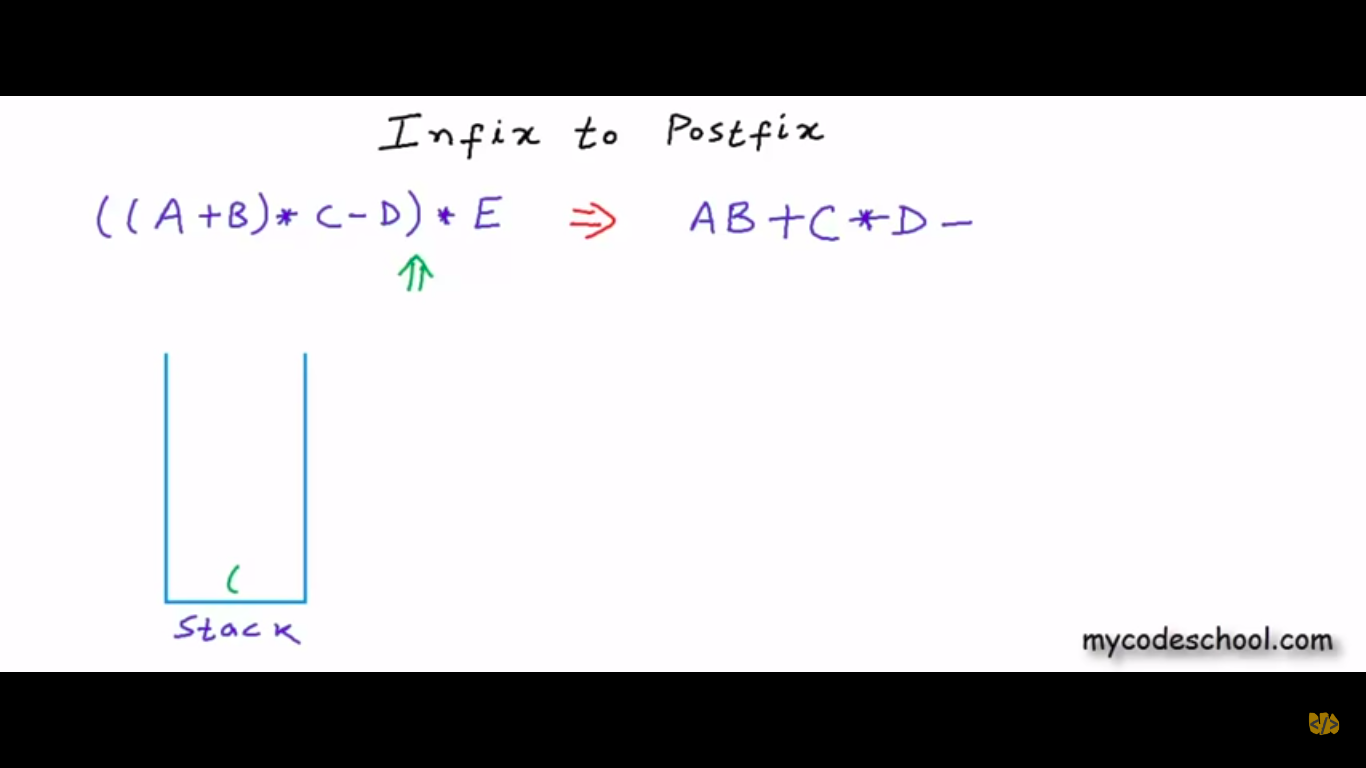 Infix to Postfix
((A+B)* C-D) * E ⇒ AB+C*D-
(
Stack
mycodeschool.com